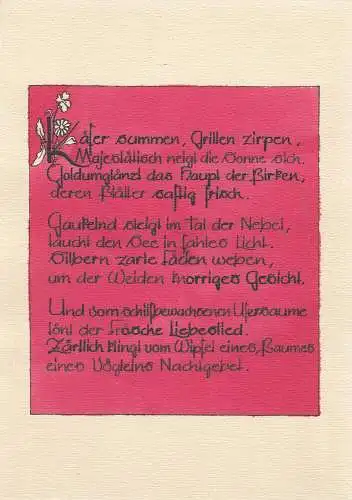 Käfer summen, Grillen zirpen,
Majestätisch neigt die Sonne sich.
Goldumglänzt das Haupt der Birken,
deren Blätter saftig frisch.
Gaukelnd steigt im Tal der Nebel,
taucht den See in fahles Licht.
Silbern zarte Fäden weben,
um der Weiden knorriges Gesicht.
Und vom schilfbewachsenen Ufersaume
tönt der Frösche Liebeslied.
Zärtlich klingt vom Wipfel eines Baumes
eines Vögleins Nachtgebet.